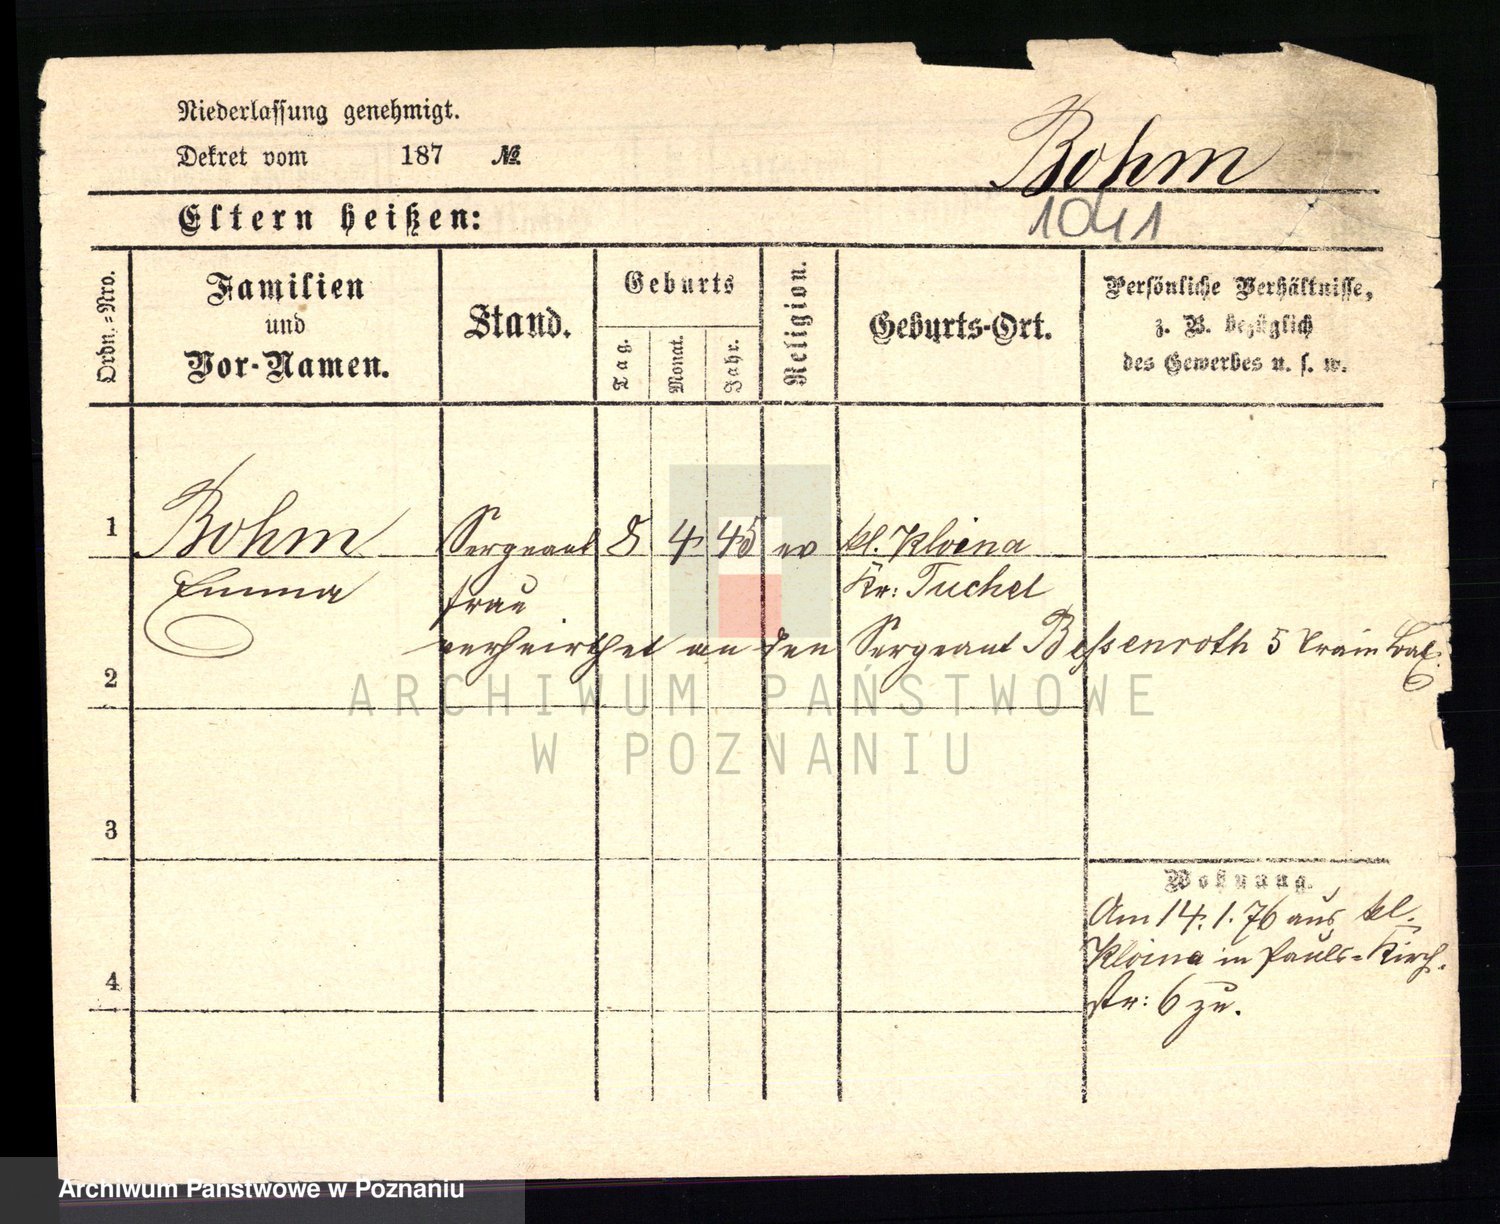 Niederlassung genehmigt.
Dekret vom 187 №
Bohm
1041
Eltern heißen:
Ordn.-Nro.
Familien
und
Vor-Namen.
Stand.
Geburts
Tag.
Monat.
Jahr.
Religion.
Geburts-Ort.
Persönliche Verhältnisse,
z. B. bezüglich
des Gewerbes u. s. w.
1 Bohm Sergeant 8 4 45 ev kl. Kloina
Emma frau Kr: Tuchel
verheirthet an den Sergeant Bessenroth 5 Train Bat.
2
ARCHIWUM PAŃSTWOWE
W POZNANIU
3
Wohnung.
Am 14.1.76 aus kl.
Kloina in Pauls-Kirch
str: 6 zu.
4
Archiwum Państwowe w Poznaniu